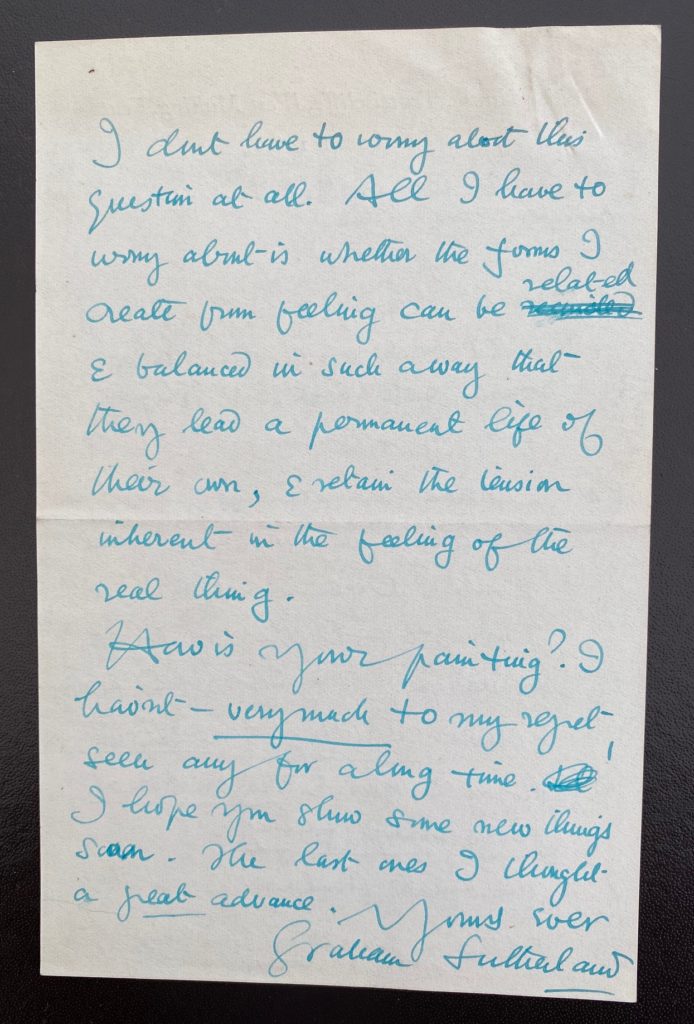 I dont have to worry about this
question at all. All I have to
worry about is whether the forms I
related
create from feeling can be
& balanced in such a way that
they lead a permanent life of
their own, & retain the tension
inherent in the feeling of the
real thing.
How is your painting? I
havn't – very much to my regret,
seen any for a long time.
I hope you show some new things
soon. The last ones I thought
a great advance. Yours ever
Graham Sutherland